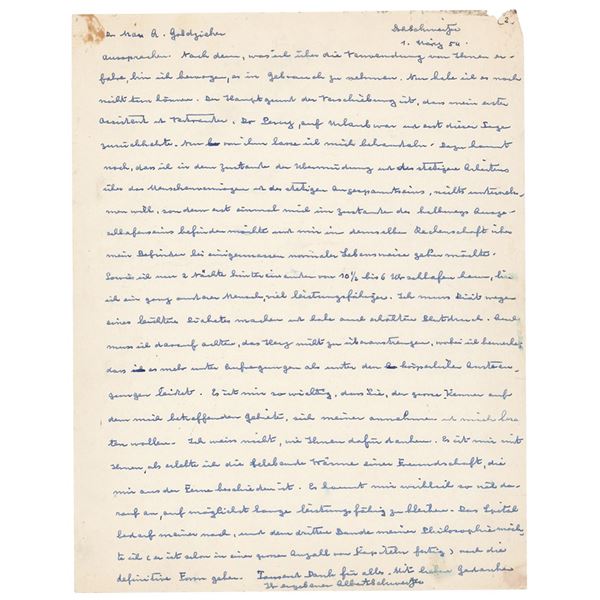 Dr Max A. Goldzieher
Dr Schweitzer
2.
1. März 54.
aussprachen. Nach dem, was ich über die Verwendung von Ihnen er-
fahre, bin ich bewogen, es in Gebrauch zu nehmen. Nur habe ich es noch
nicht tun können. Der Hauptgrund der Verschiebung ist, dass mein erster
Assistent u Vertrauter, Dr Percy, auf Urlaub war u erst dieser Tage
zurückkehrte. Nur von ihm lasse ich mich behandeln. Dazu kommt
noch, dass ich in dem Zustande der Übermüdung u des stetigen Arbeitens
über das Menschenvermögen u des stetigen Angespanntseins, nichts unterneh-
men will, sondern erst einmal mich im Zustande des halbwegs Ausge-
schlafenseins befinden möchte und mir in demselben Rechenschaft über
mein Befinden bei einigermassen normaler Lebensweise geben möchte.
Sowie ich nur 2 Nächte hintereinander von 10½ bis 6 Uhr schlafen kann, bin
ich ein ganz anderer Mensch, viel leistungsfähiger. Ich muss Diät wegen
eines leichten Diabetes machen u habe auch erhöhten Blutdruck. Auch
muss ich darauf achten, das Herz nicht zu überanstrengen, wobei ich bemerke,
dass es mehr unter Aufregungen als unter den körperlichen Anstren-
gungen leidet. Es ist mir so wichtig, dass Sie, der grosse Kenner auf
dem mich betreffenden Gebiete, sich meiner annehmen u mich bera-
ten wollen. Ich weiss nicht, wie Ihnen dafür danken. Es ist mir mit
Ihnen, als erlebte ich die belebende Wärme einer Freundschaft, die
mir aus der Ferne beschieden ist. Es kommt mir wirklich so viel da-
rauf an, auf möglichst lange leistungsfähig zu bleiben. Das Spital
bedarf meiner noch, und dem dritten Bande meiner Philosophie möch-
te ich (er ist schon in einer grossen Anzahl von Kapiteln fertig) noch die
definitive Form geben. Tausend Dank für alles. Mit lieben Gedanken
Ihr ergebener Albert Schweitzer